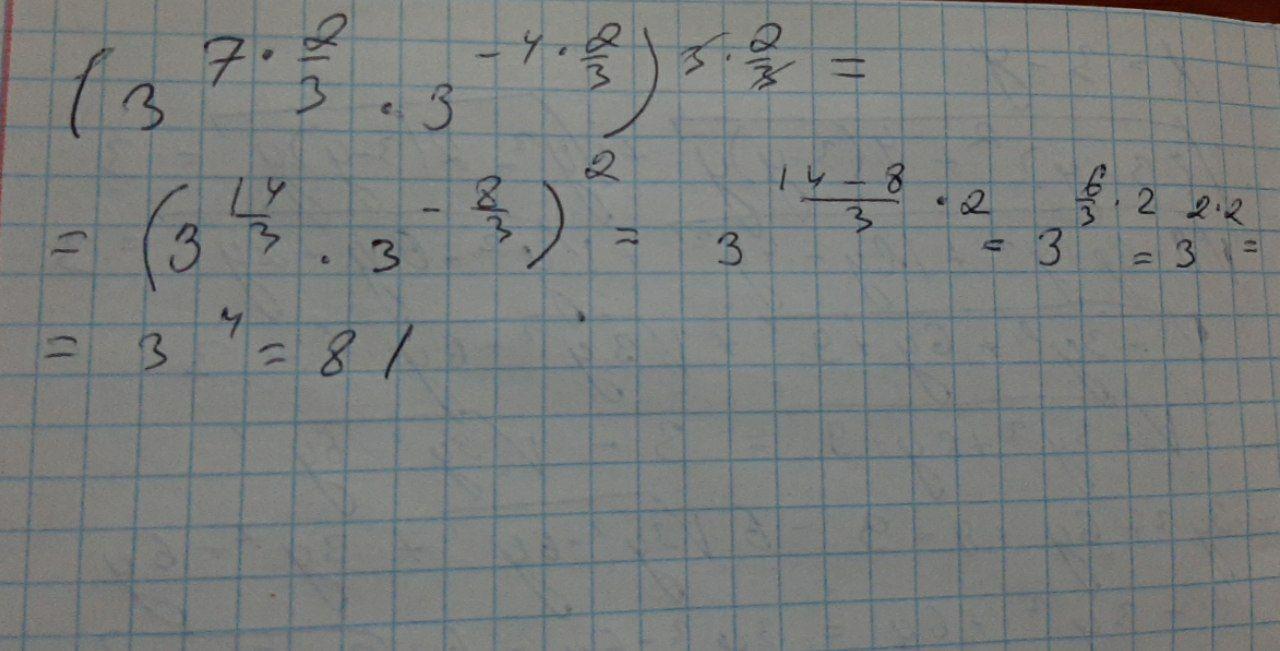 (3^{7·\frac{2}{3}} · 3^{-4·\frac{2}{3}})^{3·\frac{2}{3}} =
= (3^{\frac{14}{3}} · 3^{-\frac{8}{3}})^2 = 3^{\frac{14-8}{3}·2} = 3^{\frac{6}{3}·2} = 3^{2·2} =
= 3^4 = 81